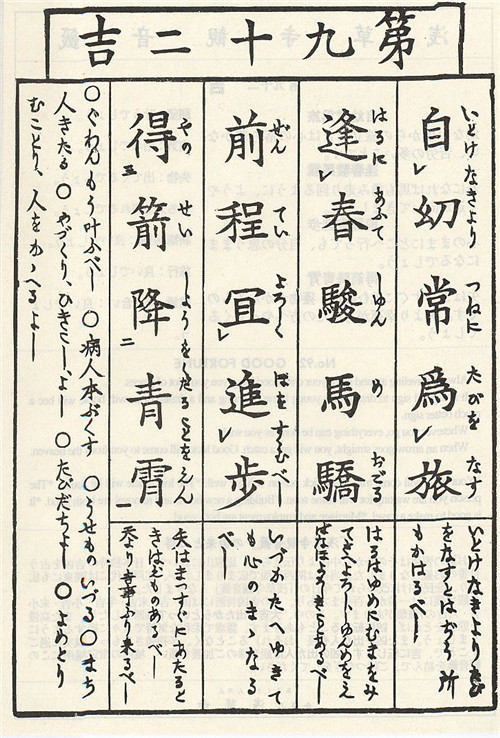 第九十二吉
自幼常爲旅
いとけなきより つねに たびを なす
いとけなきよりたび
をなすはおほく所
もかはるべし
逢春駿馬驕
はるにあふて しゆん め おごる
はるはゆめにむまをみ
てきよろし
前程宜進歩
ぜん てい よろしく ほをすすむべし
いづかたへゆきて
も心のまゝなる
べし
得箭降青霄
やの せい しようをくだることをえん
矢はまつすぐにあたると
きはえものあるべし
天より幸事ふり来るべし
○ぐわんもう叶ふべし ○病人本ぶくす ○うせものいづる○まち
人きたる○やづくり、ひきこし、よし ○たびだちよし ○よめとり
むことり、人をかゝへるよし